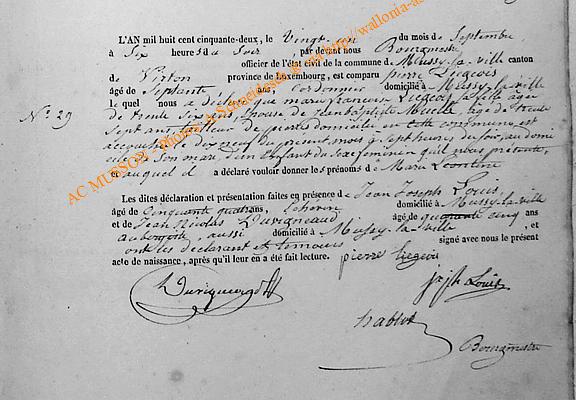 L'AN mil huit cent cinquante-deux, le Vingt un du mois de Septembre
à Six heures du Soir, par devant nous Bourgmestre
officier de l'état civil de la commune de Mussy-la-ville canton
de Virton province de Luxembourg, est comparu pierre Liégeois
âgé de Septante ans, Cordonnier domicilié à Mussy-la-ville
N° 29
le quel nous a déclaré que marie françoise Liégeois, sa fille âgée
de trente six ans, Epouse de Jean baptiste agé de trente
Sept ans, tailleur de pierres domicilié en cette commune, est
accouchée le dix neuf du présent mois à Sept heures du Soir, au domi
cile de Son mari, d'un Enfant du Sexe féminin qu'il nous présente,
et auquel il a déclaré vouloir donner les prénoms de Marie Léontine
Les dites déclaration et présentation faites en présence de Jean Joseph Louis,
âgé de Cinquante quatre ans, domicilié à Mussy-la-ville
et de Jean Nicolas Duvigneaud âgé de quarante cinq ans
aubergiste, aussi domicilié à Mussy-la-ville, et
ont les déclarant et témoins signé avec nous le présent
acte de naissance, après qu'il leur en a été fait lecture. pierre liegeois
jsph Louis
hablot
Bourgmestre
AC MUSSON - Photo